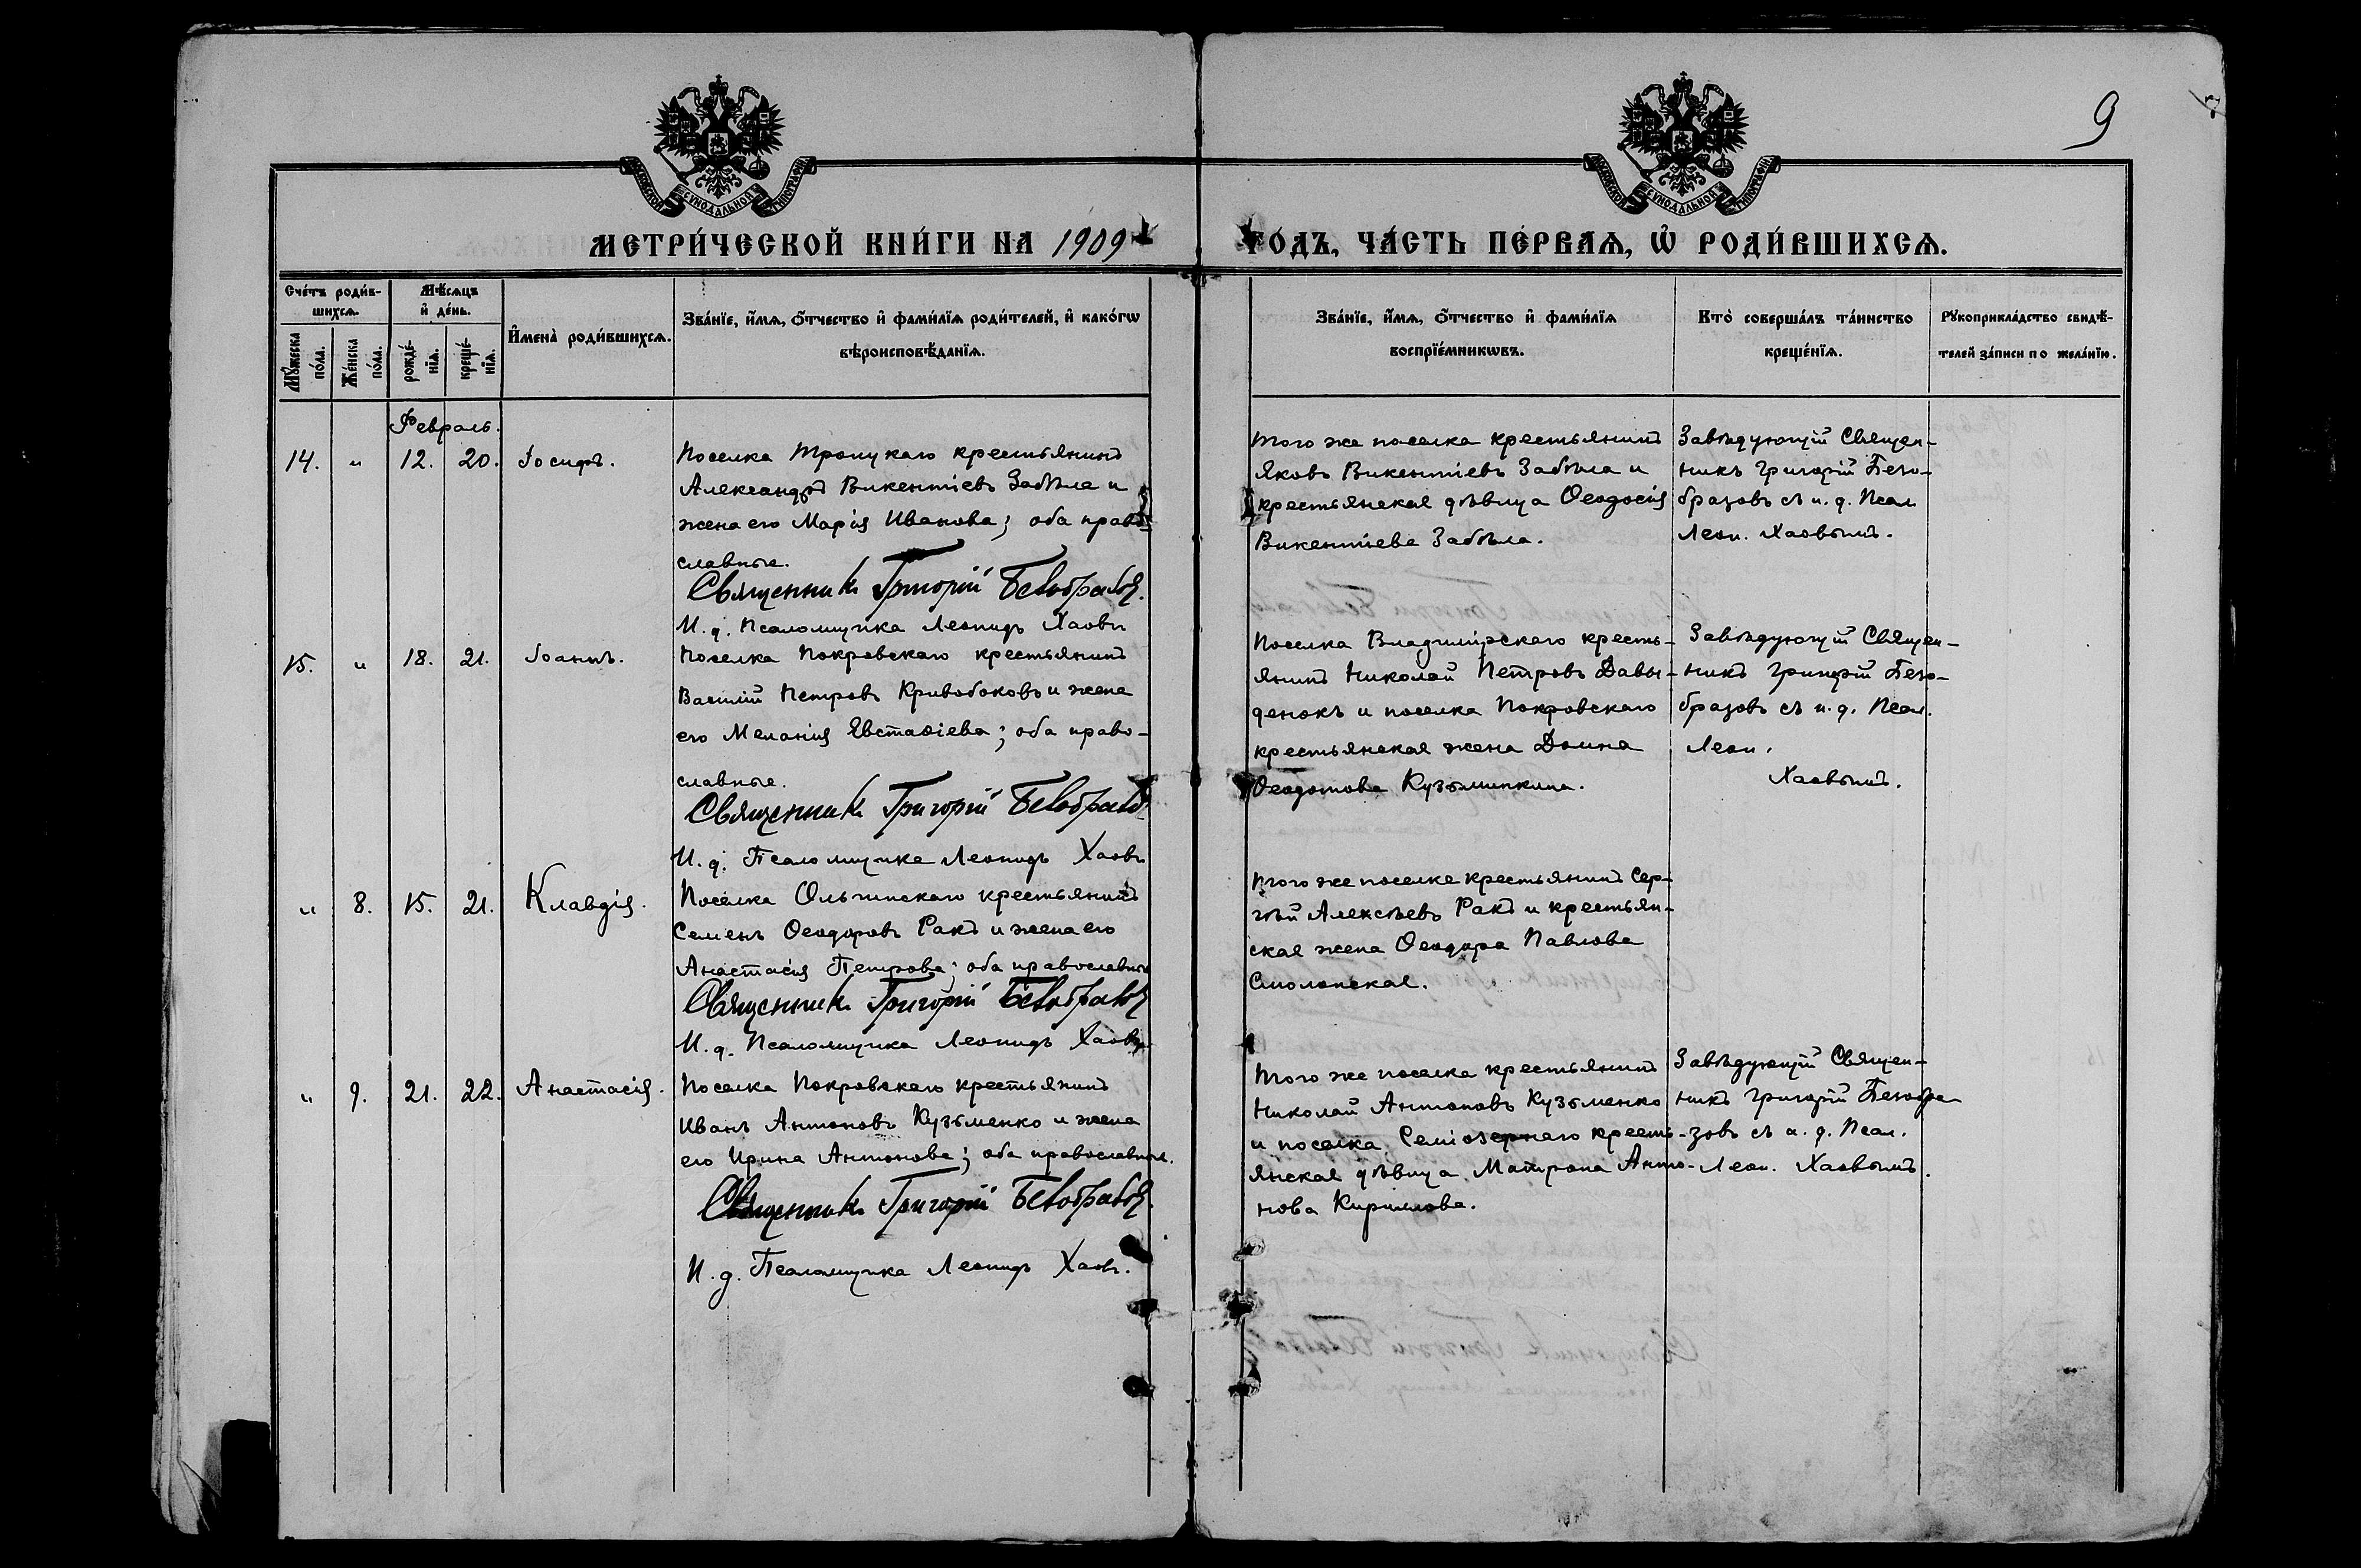 9
МОСКОВСКОЙ СѴНОДАЛЬНОЙ ТИПОГРАФІИ
МОСКОВСКОЙ СѴНОДАЛЬНОЙ ТИПОГРАФІИ
МЕТРИ́ЧЕСКОЙ КНИ́ГИ НА 1909
ГО́ДЪ, ЧА́СТЬ ПЕ́РВАѦ, Ѡ҆ РОДИ́ВШИХСѦ.
Сче́тъ роди́в-
шихсѧ.
Мꙋ́жеска
по́ла.
Же́нска
по́ла.
Мѣ́сѧцъ
и҆ де́нь.
рожде́-
нїѧ.
креще́-
нїѧ.
И҆мена̀ роди́вшихсѧ.
Зва́нїе, и҆́мѧ, ѻ҆́тчество и҆ фами́лїѧ роди́телей, и҆ како́гѡ
вѣроисповѣ́данїѧ.
Зва́нїе, и҆́мѧ, ѻ҆́тчество и҆ фами́лїѧ
воспрїе́мникѡвъ.
Кто̀ соверша́лъ та́инство
креще́нїѧ.
Рꙋкоприкла́дство свидѣ́-
телей за́писи по жела́нїю.
Февраль.
14. " 12. 20. Іосифъ.
Поселка Троицкаго крестьянинъ
Александръ Викентіевъ Забѣла и
жена его Марія Иванова; оба право-
славные.
Священникъ Григорій Безобразовъ.
И. д. Псаломщика Леонидъ Хаовъ
того же поселка крестьянинъ
Яковъ Викентіевъ Забѣла и
крестьянская дѣвица Ѳеодосія
Викентіева Забѣла.
Завѣдующій Священ-
никъ Григорій Безо-
бразовъ съ и. д. Псал
Леон. Хаовымъ.
15. " 18. 21. Іоаннъ.
Поселка Покровскаго крестьянинъ
Василій Петровъ Кривобоковъ и жена
его Меланія Евстаѳіева; оба право-
славные.
Священникъ Григорій Безобразовъ
И. д. Псаломщика Леонидъ Хаовъ
Поселка Владимірскаго кресть-
янинъ Николай Петровъ Давы-
денокъ и поселка Покровскаго
крестьянская жена Домна
Ѳеодотова Кузьминкина.
Завѣдующій Священ-
никъ Григорій Безо-
бразовъ съ и. д. Псал.
Леон.
Хаовымъ.
" 8. 15. 21. Клавдія.
Поселка Ольгинскаго крестьянинъ
Семенъ Ѳеодоровъ Ракъ и жена его
Анастасія Петрова; оба православные
Священникъ Григорій Безобразовъ
И. д. Псаломщика Леонидъ Хаовъ
того же поселка крестьянинъ Сер-
гѣй Алексѣевъ Ракъ и крестьян-
ская жена Ѳеодора Павлова
Смоленская.
" 9. 21. 22. Анастасія.
Поселка Покровскаго крестьянинъ
Иванъ Антоновъ Кузьменко и жена
его Ирина Антонова; оба православные.
Священникъ Григорій Безобразовъ.
И. д. Псаломщика Леонидъ Хаовъ.
Того же поселка крестьянинъ
Николай Антоновъ Кузьменко
и поселка Семіозернаго кресть-
янская дѣвица Матрона Анто-
нова Кириллова.
Завѣдующій Священ-
никъ Григорій Безобра-
зовъ съ и. д. Псал.
Леон. Хаовымъ.